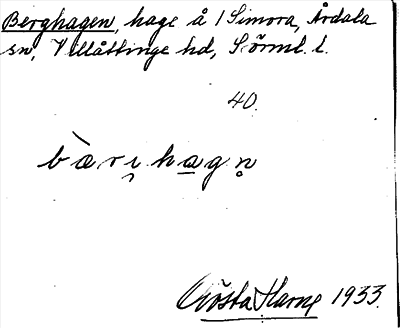 Berghagen, hage å 1 Simora, Årdala
sn, Villåttinge hd, Sörml. l.
40.
bàri̥hagn̥
Gösta Harne 1933.